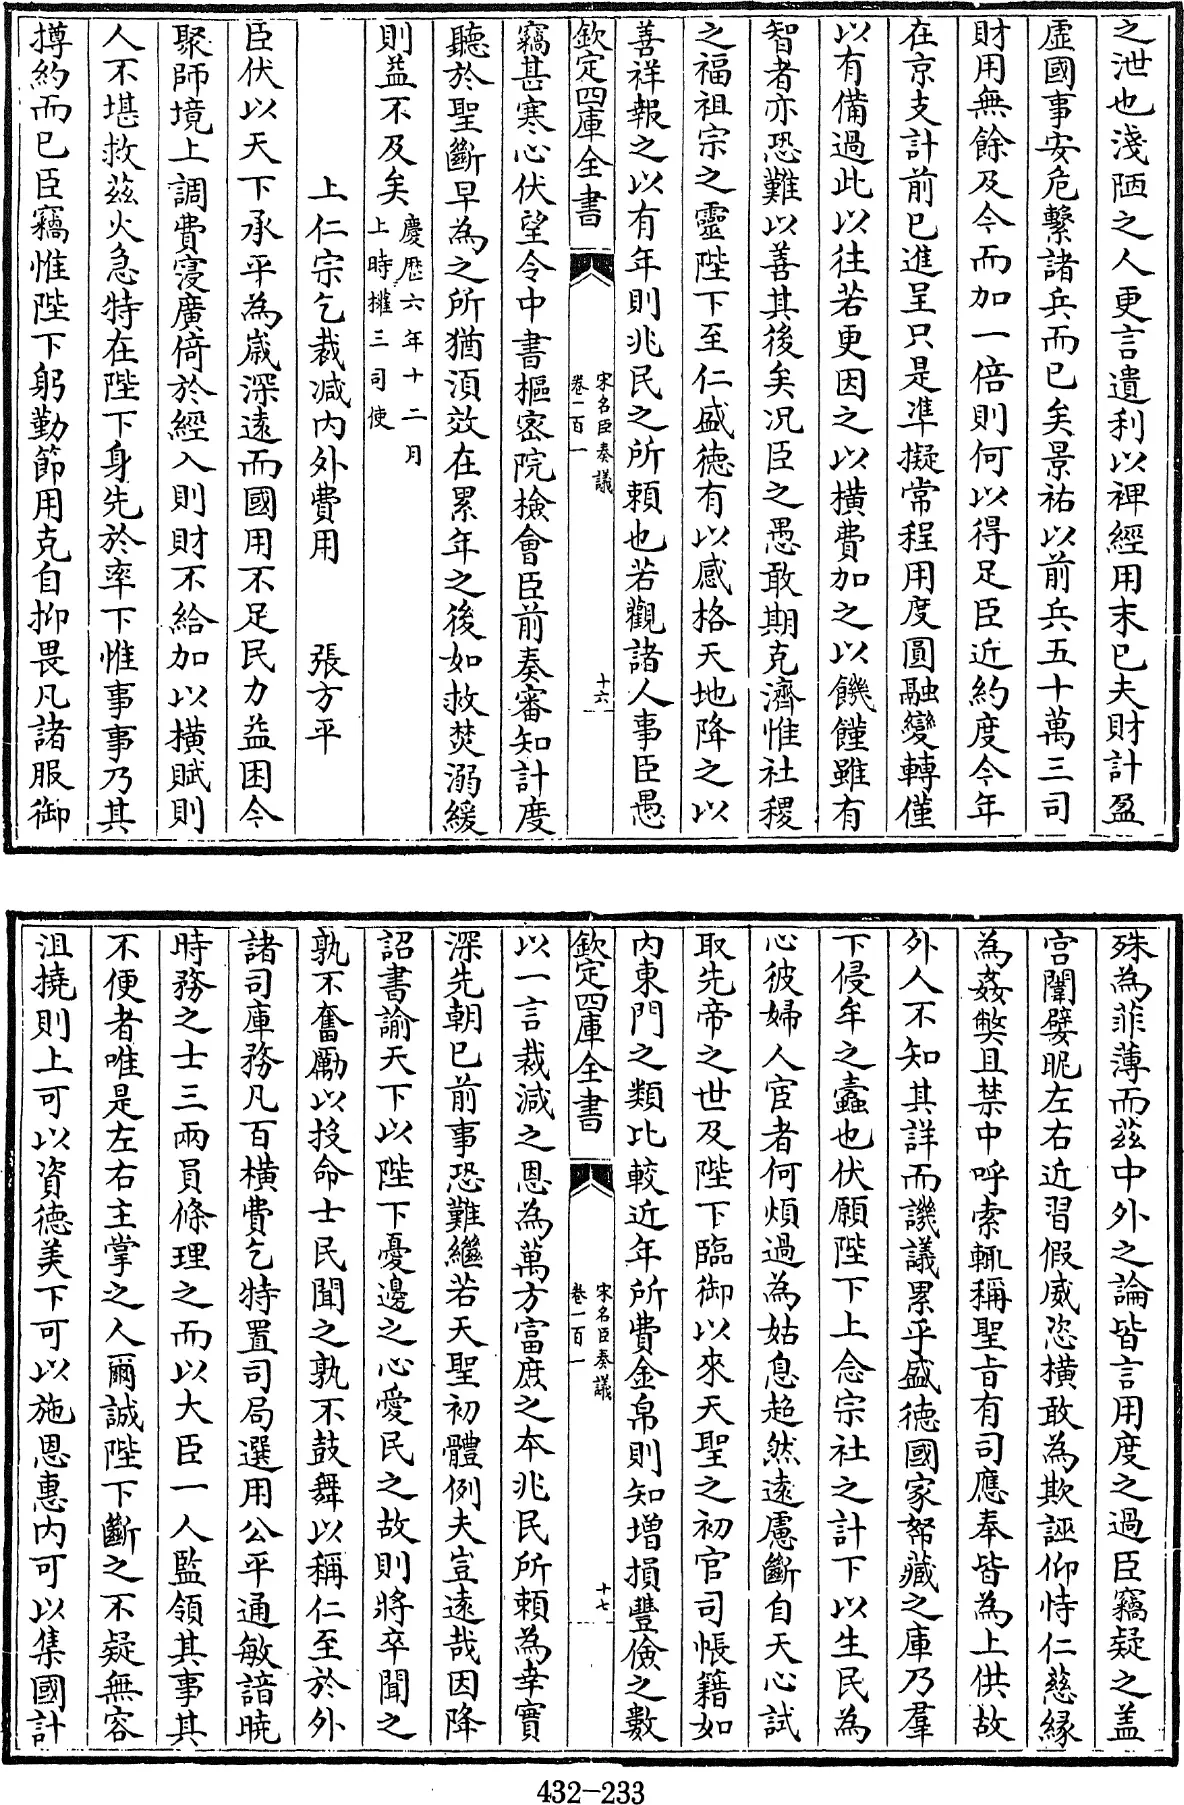 之泄也淺陋之人更言遺利以裨經用末已夫財計盈
虛國事安危繫諸兵而已矣景祐以前兵五十萬三司
財用無餘及今而加一倍則何以得足臣近約度今年
在京支計前已進呈只是準擬常程用度圓融變轉僅
以有備過此以往若更因之以橫費加之以饑饉雖有
智者亦恐難以善其後矣况臣之愚敢期克濟惟社稷
之福祖宗之靈陛下至仁盛德有以感格天地降之以
善祥報之以有年則兆民之所賴也若觀諸人事臣愚
欽定四庫全書
宋名臣奏議
卷一百一
十六
竊甚寒心伏望令中書樞密院檢會臣前奏審知計度
聽於聖斷早為之所猶湏效在累年之後如救焚溺緩
則益不及矣
慶厯六年十二月
上時權三司使
上仁宗乞裁减内外費用 張方平
臣伏以天下承平為嵗深遠而國用不足民力益困今
聚師境上調費寖廣倚於經入則財不給加以横賦則
人不堪救兹火急特在陛下身先於率下惟事事乃其
撙約而已臣竊惟陛下躬勤節用克自抑畏凡諸服御
殊為菲薄而兹中外之論皆言用度之過臣竊疑之盖
宫闈嬖昵左右近習假威恣横敢為欺誣仰恃仁慈縁
為姦獘且禁中呼索輒稱聖㫖有司應奉皆為上供故
外人不知其詳而譏議累乎盛徳國家帑藏之庫乃羣
下侵牟之蠧也伏願陛下上念宗社之計下以生民為
心彼婦人宦者何煩過為姑息超然逺慮斷自天心試
取先帝之世及陛下臨御以來天聖之初官司帳籍如
内東門之類比較近年所費金帛則知增損豐儉之數
欽定四庫全書
宋名臣奏議
卷一百一
十七
以一言裁減之恩為萬方富庶之本兆民所頼為幸實
深先朝已前事恐難繼若天聖初體例夫豈逺哉因降
詔書諭天下以陛下憂邊之心愛民之故則將卒聞之
孰不奮勵以投命士民聞之孰不鼓舞以稱仁至於外
諸司庫務凡百横費乞特置司局選用公平通敏諳曉
時務之士三兩員條理之而以大臣一人監領其事其
不便者唯是左右主掌之人爾誠陛下斷之不疑無容
沮撓則上可以資德美下可以施恩惠内可以集國計
432-233